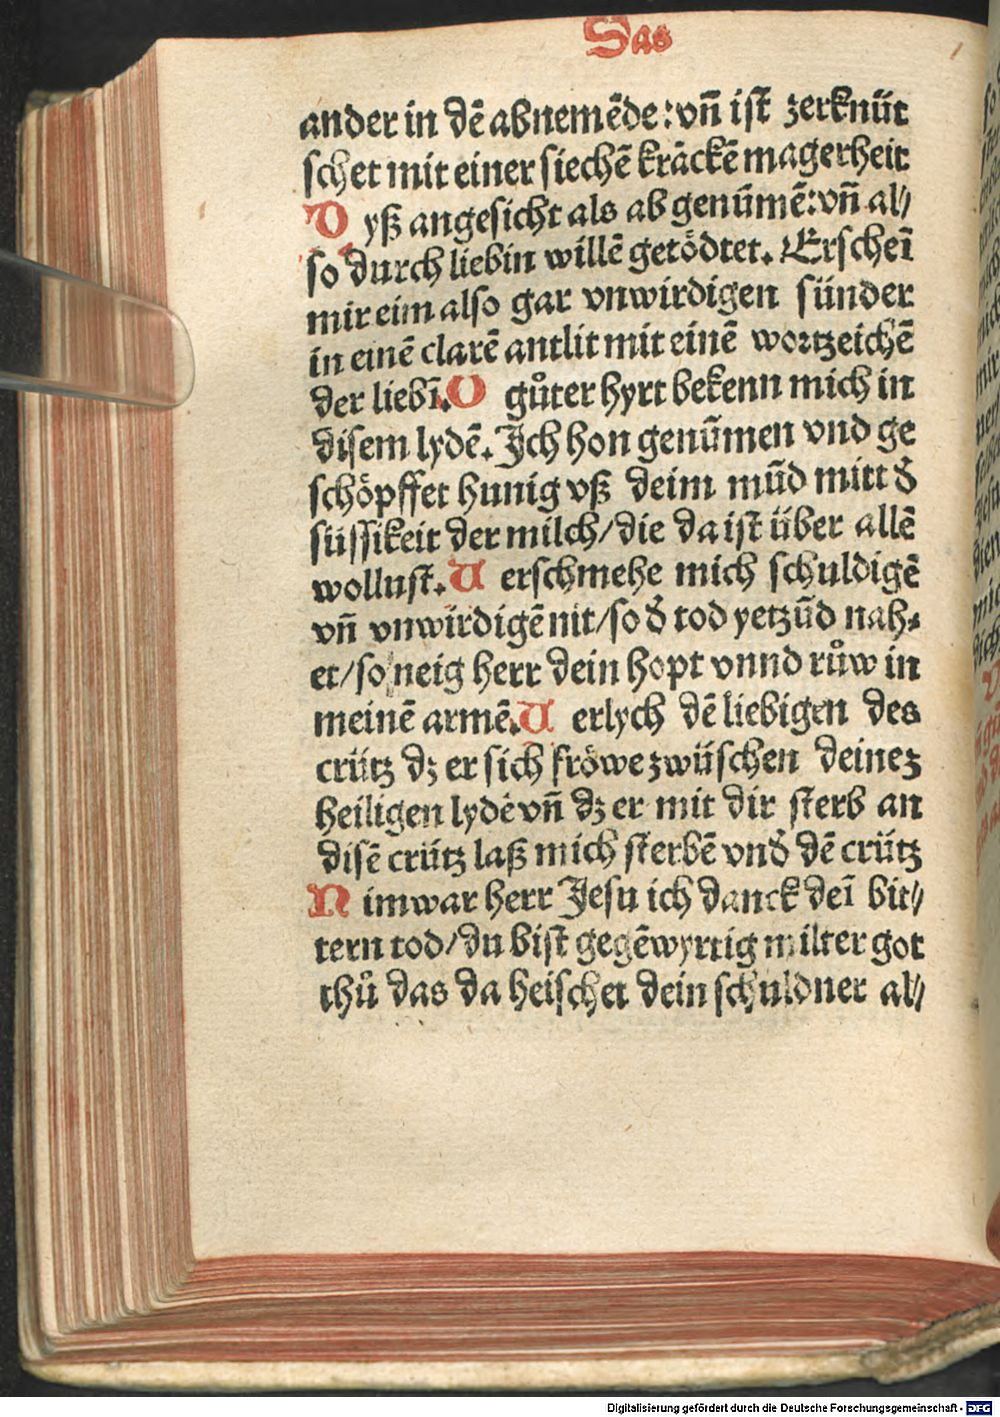 Das
ander in dē abnemēde: vñ ist zerknüt
schet mit einer siechē krāckē magerheit
Dyß angesicht als ab genūmē: vñ al//
so durch liebin willē getödtet. Erscheī
mir eim also gar vnwirdigen sünder
in einē clarē antlit mit einē wortzeichē
der liebī. O gůter hyrt bekenn mich in
disem lydē. Ich hon genūmen vnd ge
schöpffet hunig vß deim mūd mitt đ
süssikeit der milch/die da ist über allē
wollust. Uerschmehe mich schuldigē
vñ vnwirdigē nit/so đ tod yetzūd nah⸗
et/so neig herr dein hopt vnnd růw in
meinē armē. Uerlych dē liebigen des
crütz dz er sich fröwe zwüschen deinez
heiligen lydē vñ dz er mit dir sterb an
disē crütz laß mich sterbē vnđ dē crütz
Nim war herr Jesu ich danck deī bit//
tern tod/du bist gegēwyrtig milter got
thů das da heischet dein schuldner al//
Digitalisierung gefördert durch die Deutsche Forschungsgemeinschaft - DFG